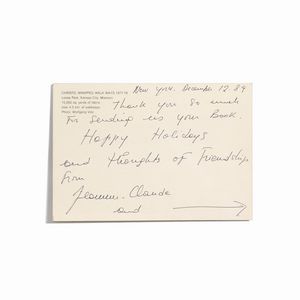 CHRISTO: WRAPPED WALK WAYS 1977-78
Loose Park, Kansas City, Missouri.
15,000 sq. yards of fabric
over 4.5 km of walkways
Photo: Wolfgang Volz
New York. December 12 84
Thank you so much
For sending us your Book.
Happy Holidays
and thoughts of Friendship
From
Jeanne-Claude
and →